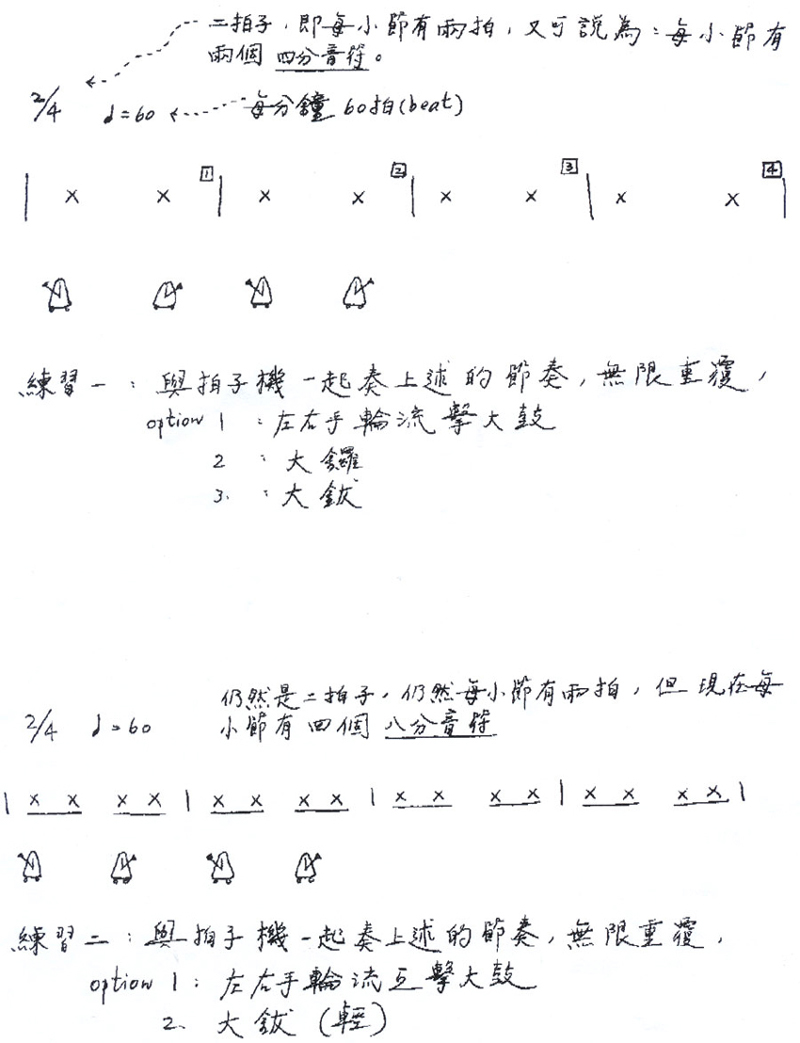 二拍子，即每小節有兩拍，又可說為：每小節有
兩個 四分音符。
2/4 ♩=60 每分鐘 60拍(beat)
| x x 1 | x x 2 | x x 3 | x x 4 |
練習一：與拍子機一起奏上述的節奏，無限重覆，
option 1 ：左右手輪流擊大鼓
2 ：大鑼
3. ：大鈸
仍然是二拍子，仍然每小節有兩拍，但現在每
2/4 ♩=60 小節有四個 八分音符
| x x x x | x x x x | x x x x | x x x x |
練習二：與拍子機一起奏上述的節奏，無限重覆，
option 1：左右手輪流互擊大鼓
2. 大鈸（輕）